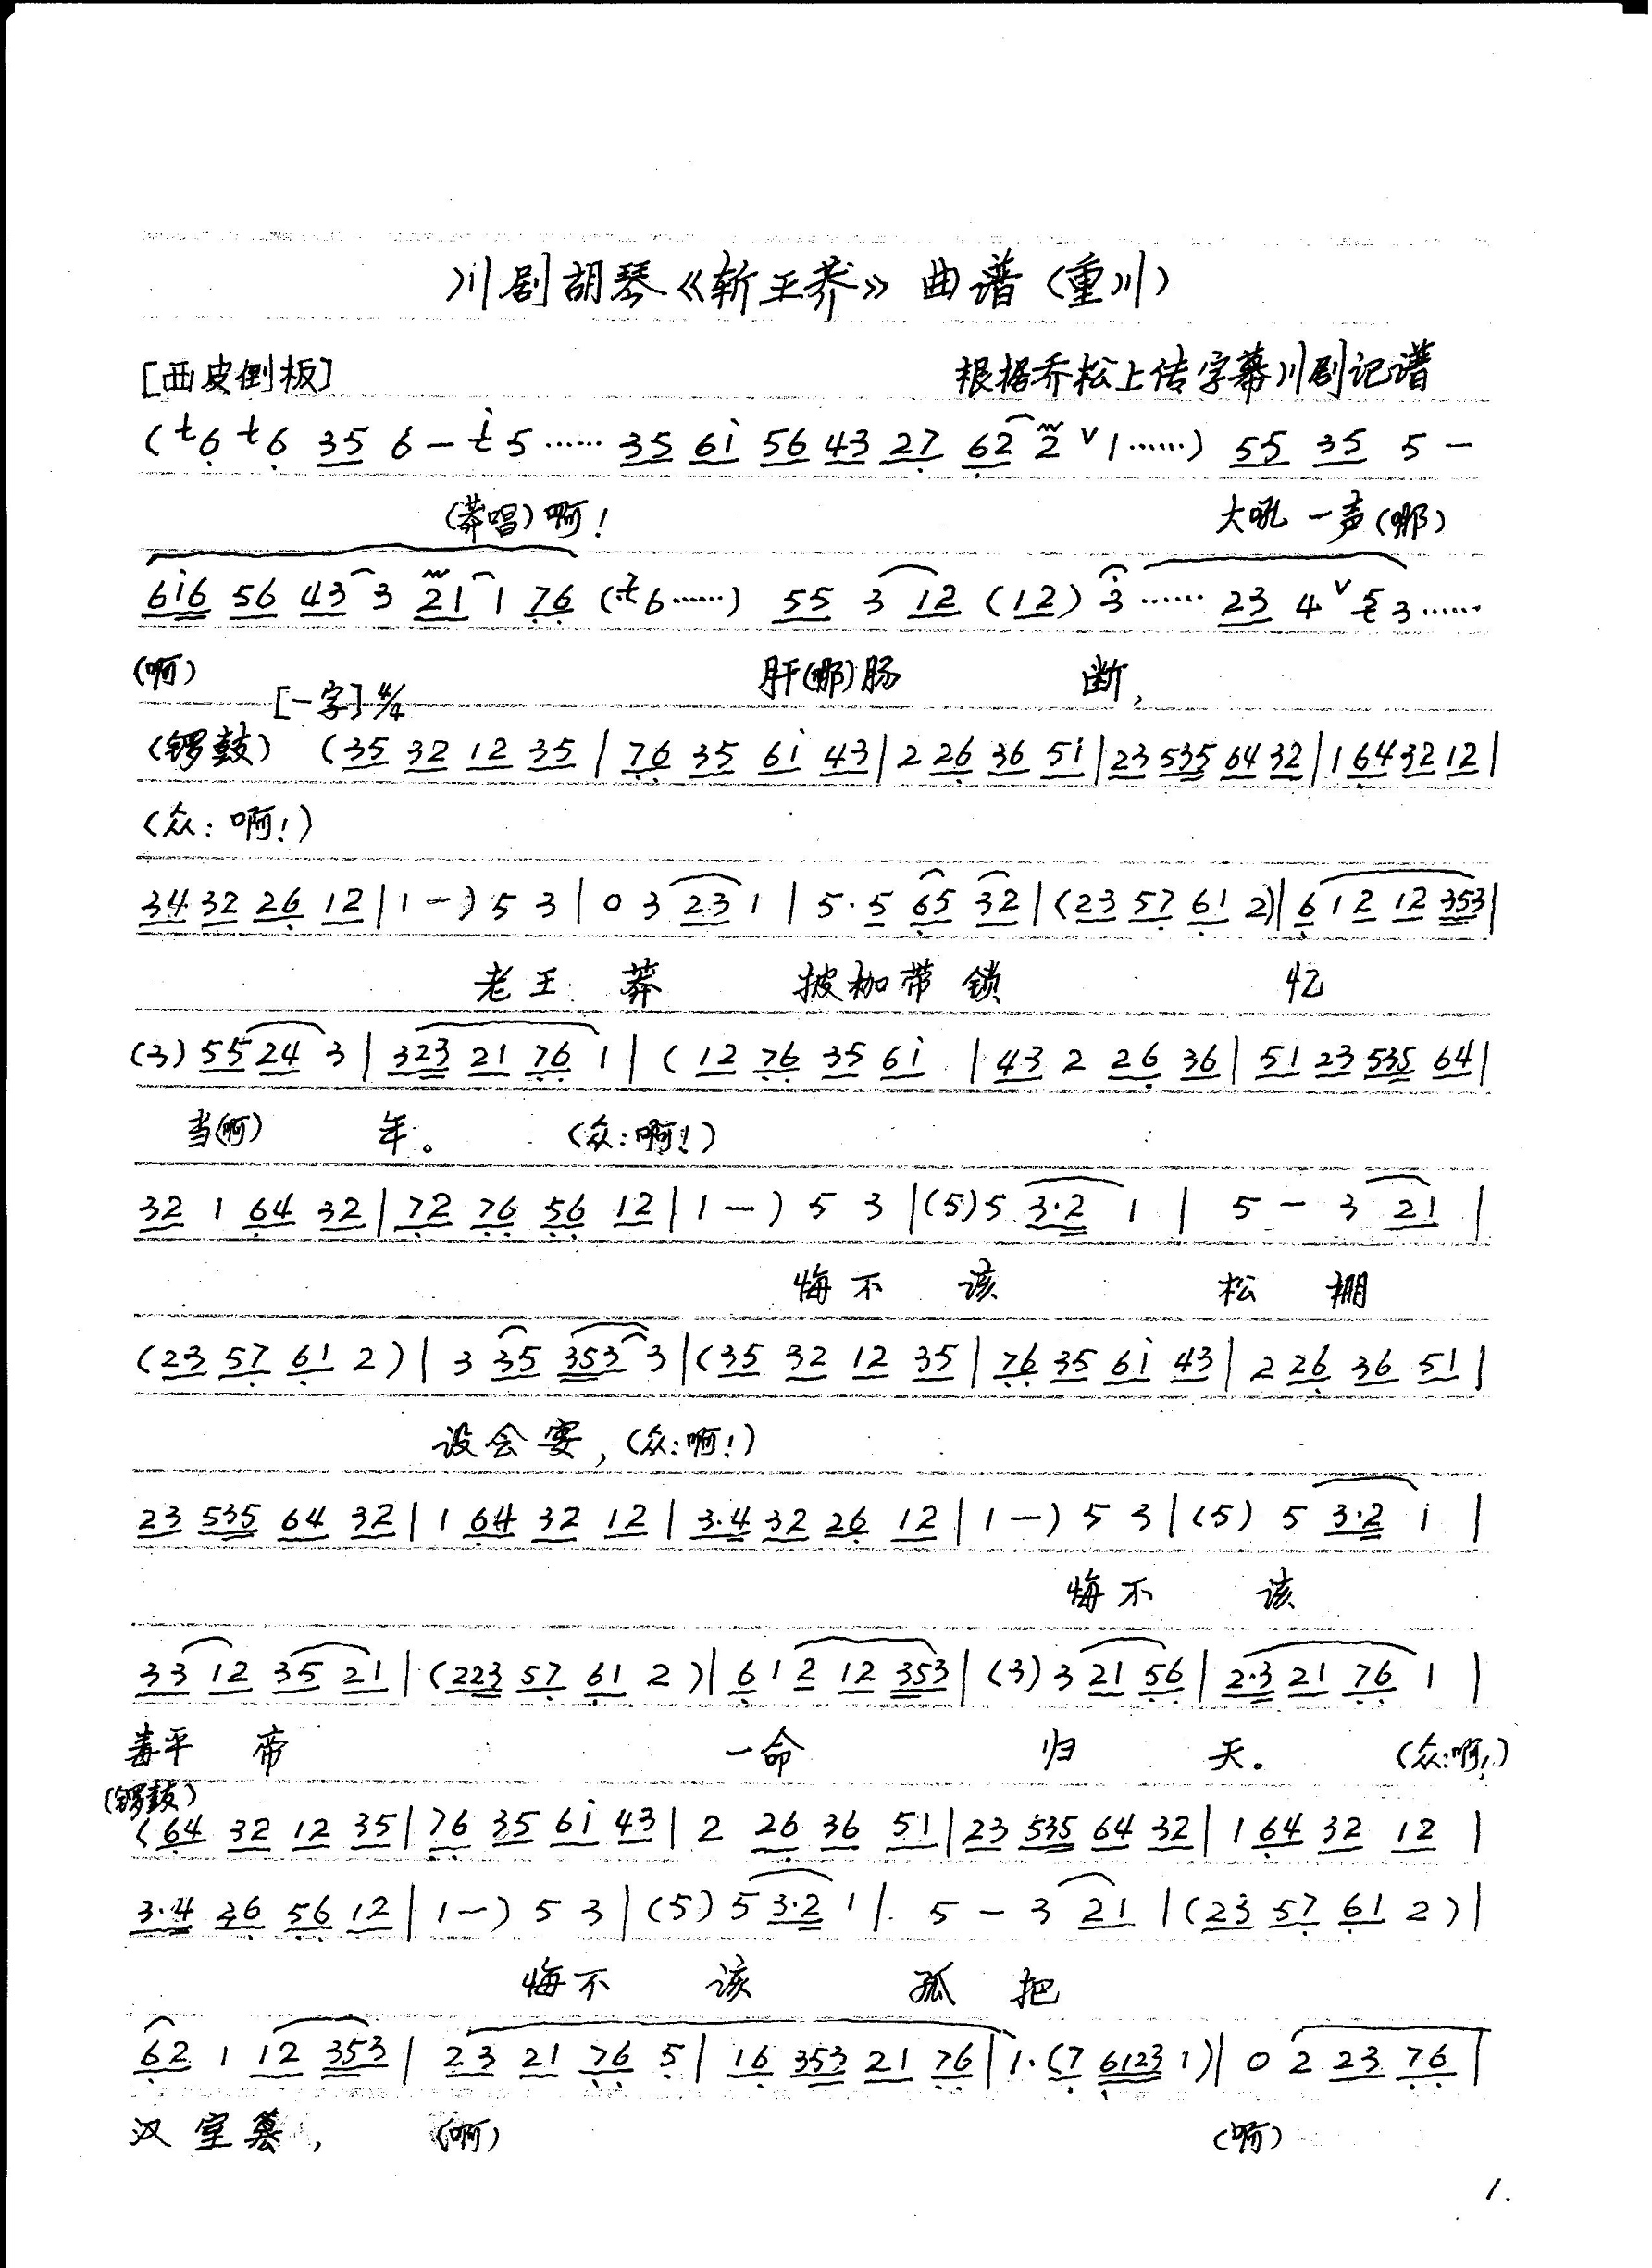 川剧胡琴《斩王莽》曲谱（重川）
[西皮倒板] 根据乔松上传字幕川剧记谱
(6 6 35 6 — 5 …… 35 61 56 43 27 62 2 ∨ 1 ……) 55 35 5 —
(莽唱)啊！ 大吼一声(哪)
616 56 43 3 21 1 76 (6 ……) 55 3 12 (12) 3 …… 23 4 ∨ 3 ……
(啊) 肝(哪)肠 断，
[一字] 4/4
(锣鼓) (35 32 12 35 | 76 35 61 43 | 2 26 36 51 | 23 535 64 32 | 1 64 32 12 |
(众：啊！)
34 32 26 12 | 1 —) 5 3 | 0 3 23 1 | 5·5 65 32 | (23 57 61 2) | 6 1 2 12 353 |
老王 莽 披枷带锁 忆
(3) 55 24 3 | 323 21 76 1 | (12 76 35 61 | 43 2 26 36 | 51 23 535 64 |
当(啊) 年。 (众：啊！)
32 1 64 32 | 72 76 56 12 | 1 —) 5 3 | (5) 5 3·2 1 | 5 — 3 21 |
悔不 该 松 棚
(23 57 61 2) | 3 35 353 3 | (35 32 12 35 | 76 35 61 43 | 2 26 36 51 |
设会宴，(众：啊！)
23 535 64 32 | 1 64 32 12 | 3·4 32 26 12 | 1 —) 5 3 | (5) 5 3·2 1 |
悔不 该
33 12 35 21 | (223 57 61 2) | 6 1 2 12 353 | (3) 3 21 56 | 2·3 21 76 1 |
毒平 帝 一命 归 天。 (众：啊！)
(锣鼓)
(64 32 12 35 | 76 35 61 43 | 2 26 36 51 | 23 535 64 32 | 1 64 32 12 |
3·4 36 56 12 | 1 —) 5 3 | (5) 5 3·2 1 | 5 — 3 21 | (23 57 61 2) |
悔不 该 孤 把
62 1 12 353 | 23 21 76 5 | 16 353 21 76 | 1·(7 6123 1) | 0 2 23 76 |
汉室篡， (啊) (啊)
1.